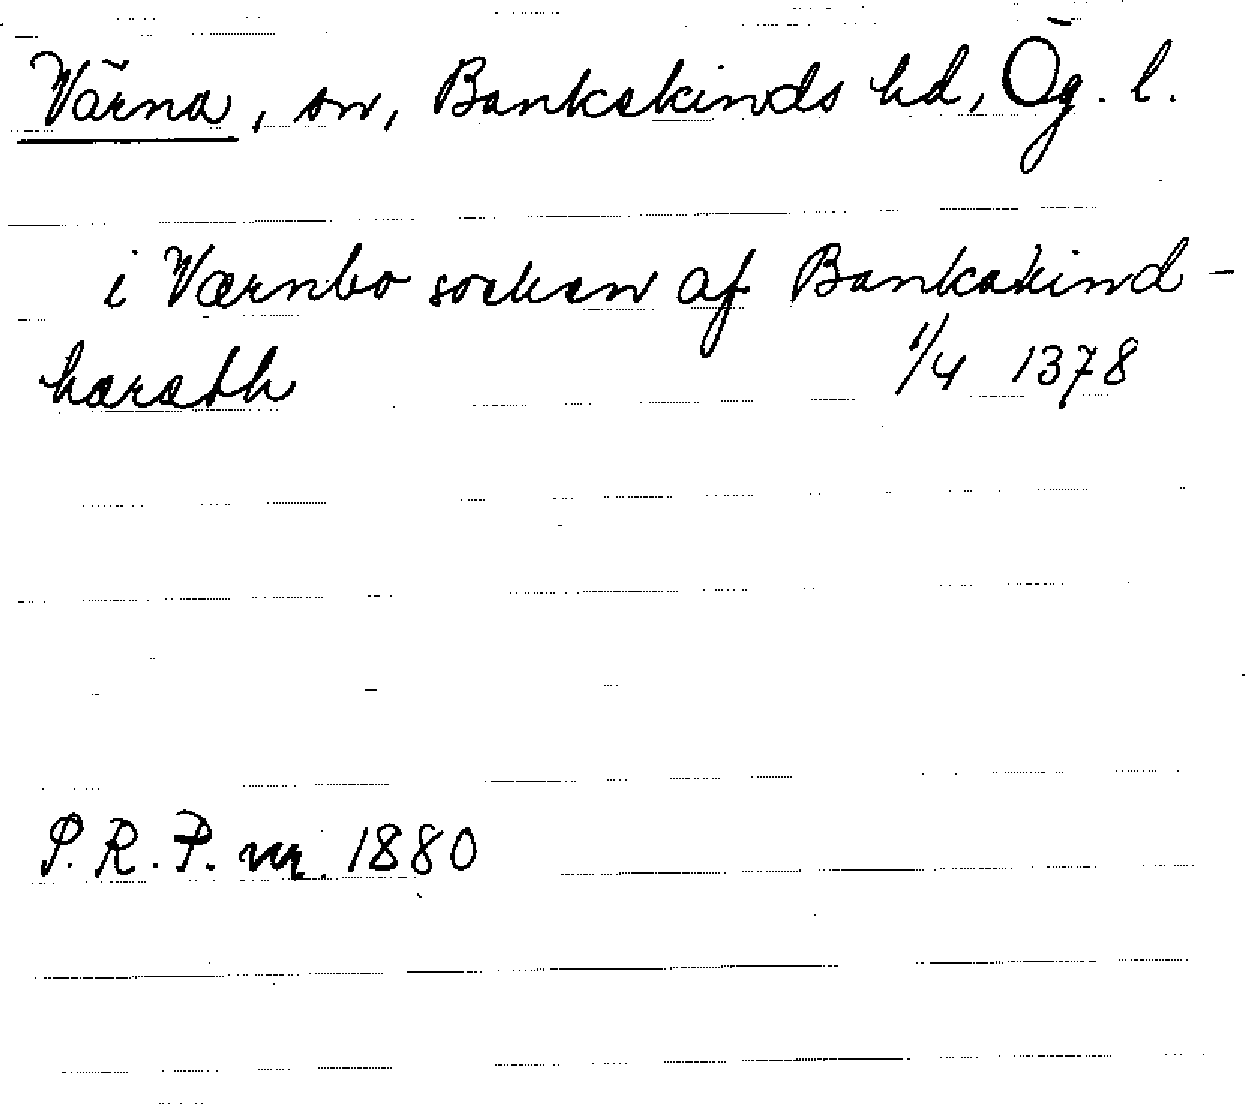 Värna, sn, Bankekinds hd, Ög. l.
i Værnbo socken af Bankakind-
haræth 1/4 1378
P.R.P. nr. 1880